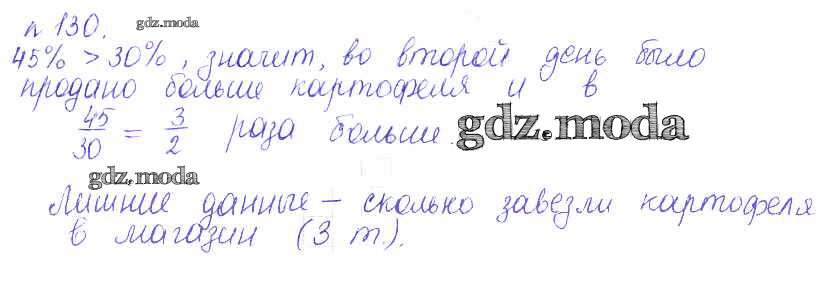 n 130. gdz.moda
45% > 30%, значит, во второй день было
продано больше картофеля и в
45/30 = 3/2 раза больше. gdz.moda
gdz.moda
Лишние данные – сколько завезли картофеля
в магазин (3 т.).